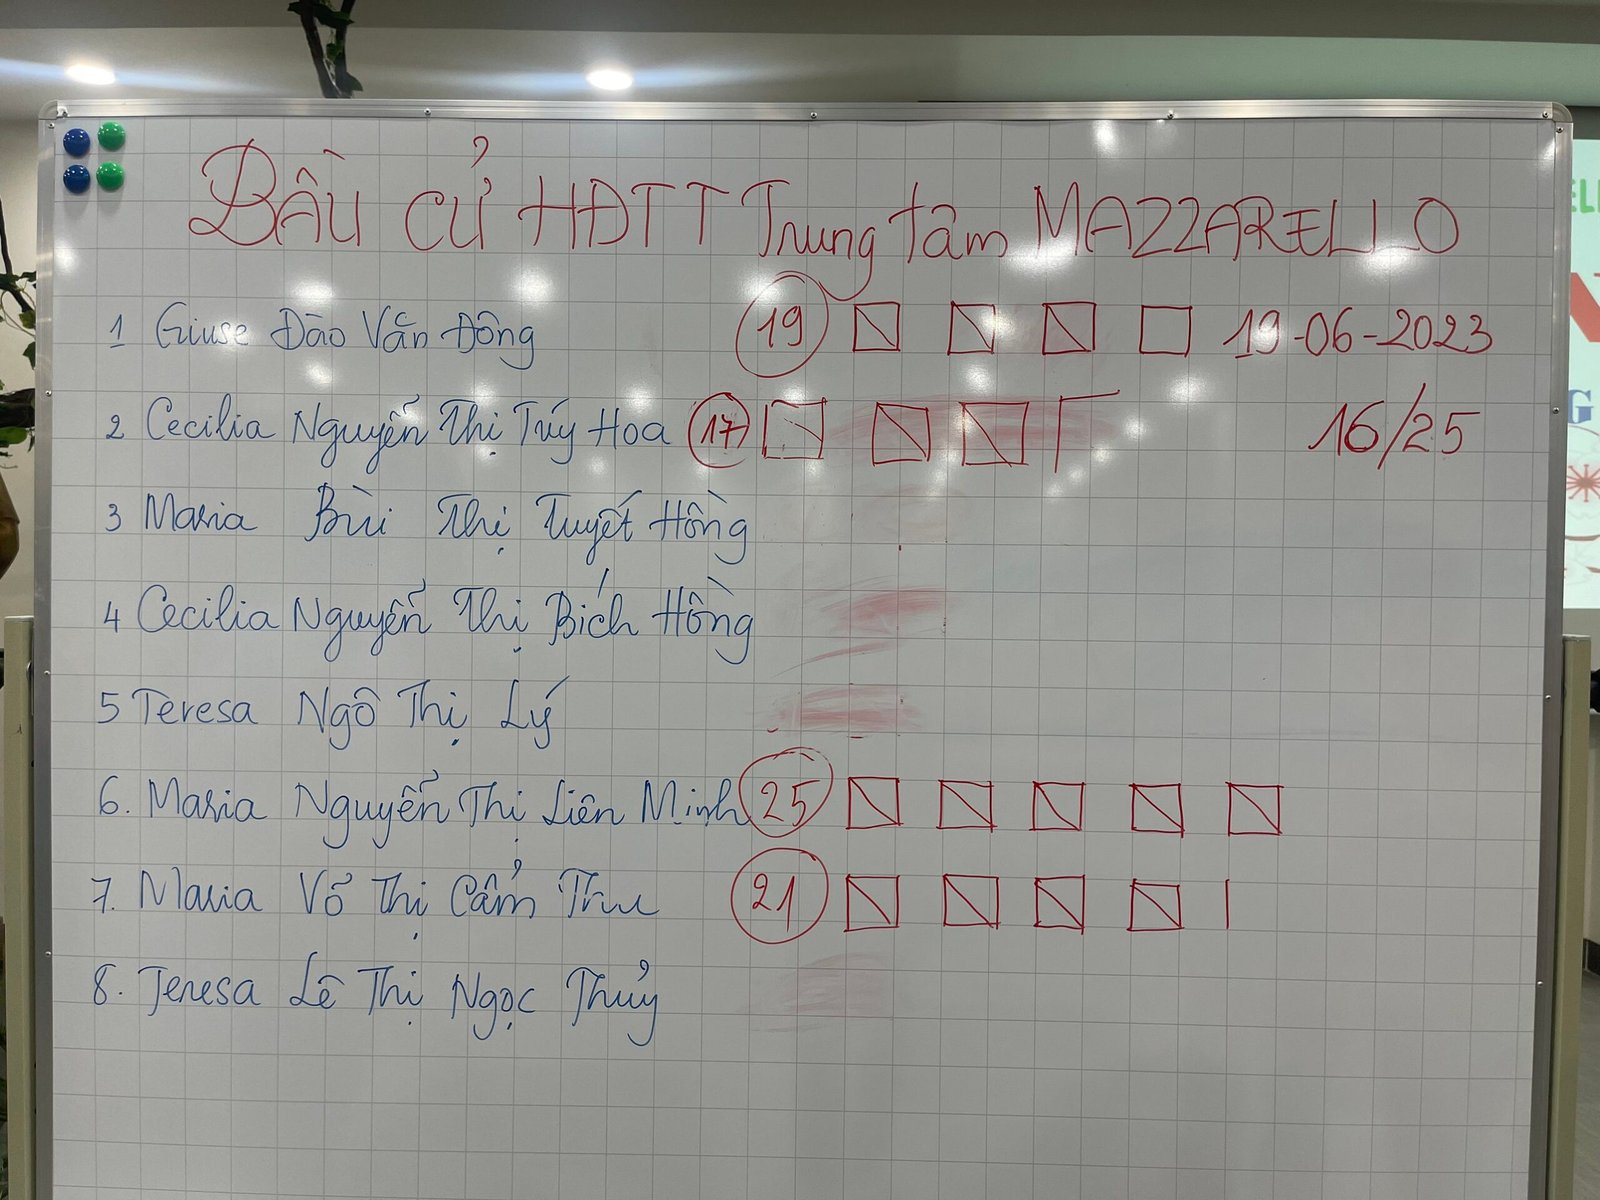 BẦU CỬ HĐTT Trung tâm MAZZARELLO
1 Giuse Đào Văn Đông 19 19-06-2023
2 Cecilia Nguyễn Thị Túy Hoa 17 16/25
3 Maria Bùi Thị Tuyết Hồng
4 Cecilia Nguyễn Thị Bích Hồng
5 Teresa Ngô Thị Lý
6. Maria Nguyễn Thị Liên Minh 25
7. Maria Võ Thị Cẩm Thu 21
8. Teresa Lê Thị Ngọc Thủy